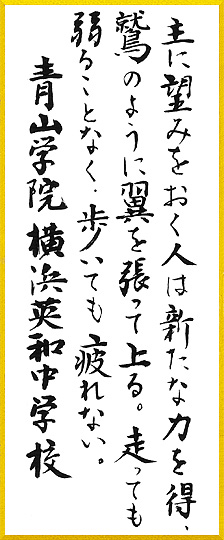 主に望みをおく人は新たな力を得、
鷲のように翼を張って上る。走っても
弱ることなく、歩いても疲れない。
青山学院横浜英和中学校